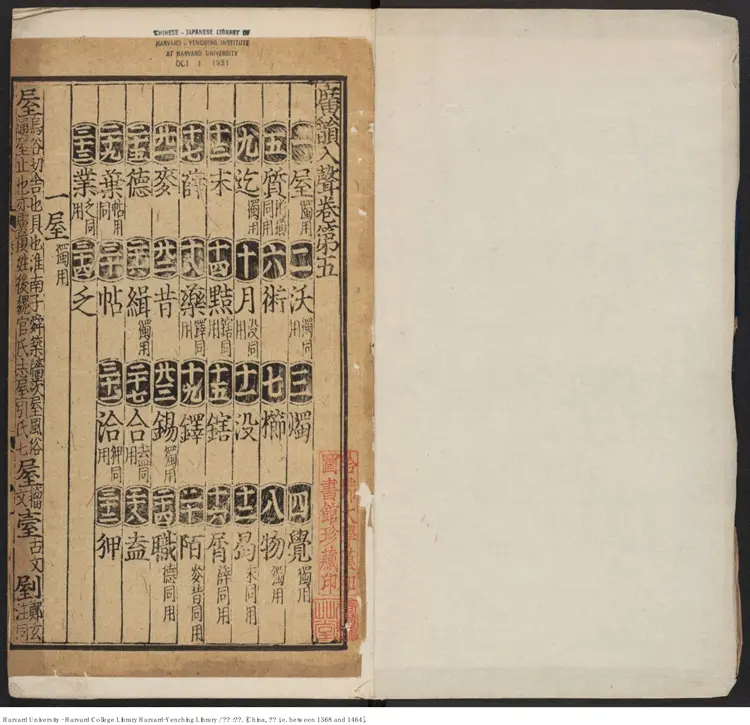 CHINESE - JAPANESE LIBRARY OF
HARVARD - YENCHING INSTITUTE
AT HARVARD UNIVERSITY
OCT 1 1931
廣韻入聲卷第五
一屋獨用 二沃燭同用 三燭 四覺獨用
五質術櫛同用 六術 七櫛 八物獨用
九迄獨用 十月没同用 十一没 十二曷末同用
十三末 十四黠鎋同用 十五鎋 十六屑薛同用
十七薛 十八藥鐸同用 十九鐸 二十陌麥昔同用
廿一麥 廿二昔 廿三錫獨用 二十四職德同用
二十五德 二十六緝獨用 二十七合盍同用 二十八盍
二十九葉帖同用 三十帖 三十一洽狎同用 三十二狎
三十三業乏同用 三十四乏
一屋獨用
屋烏谷切舍也具也淮南子舜築墻茨屋風俗通屋止也亦虜複姓後魏官氏志屋引氏七 籀文 古文 鄭玄注同
哈佛大學漢和
圖書館珍藏印
Harvard University - Harvard College Library Harvard-Yenching Library / ?? :??, [China, ?? i.e. between 1368 and 1464].